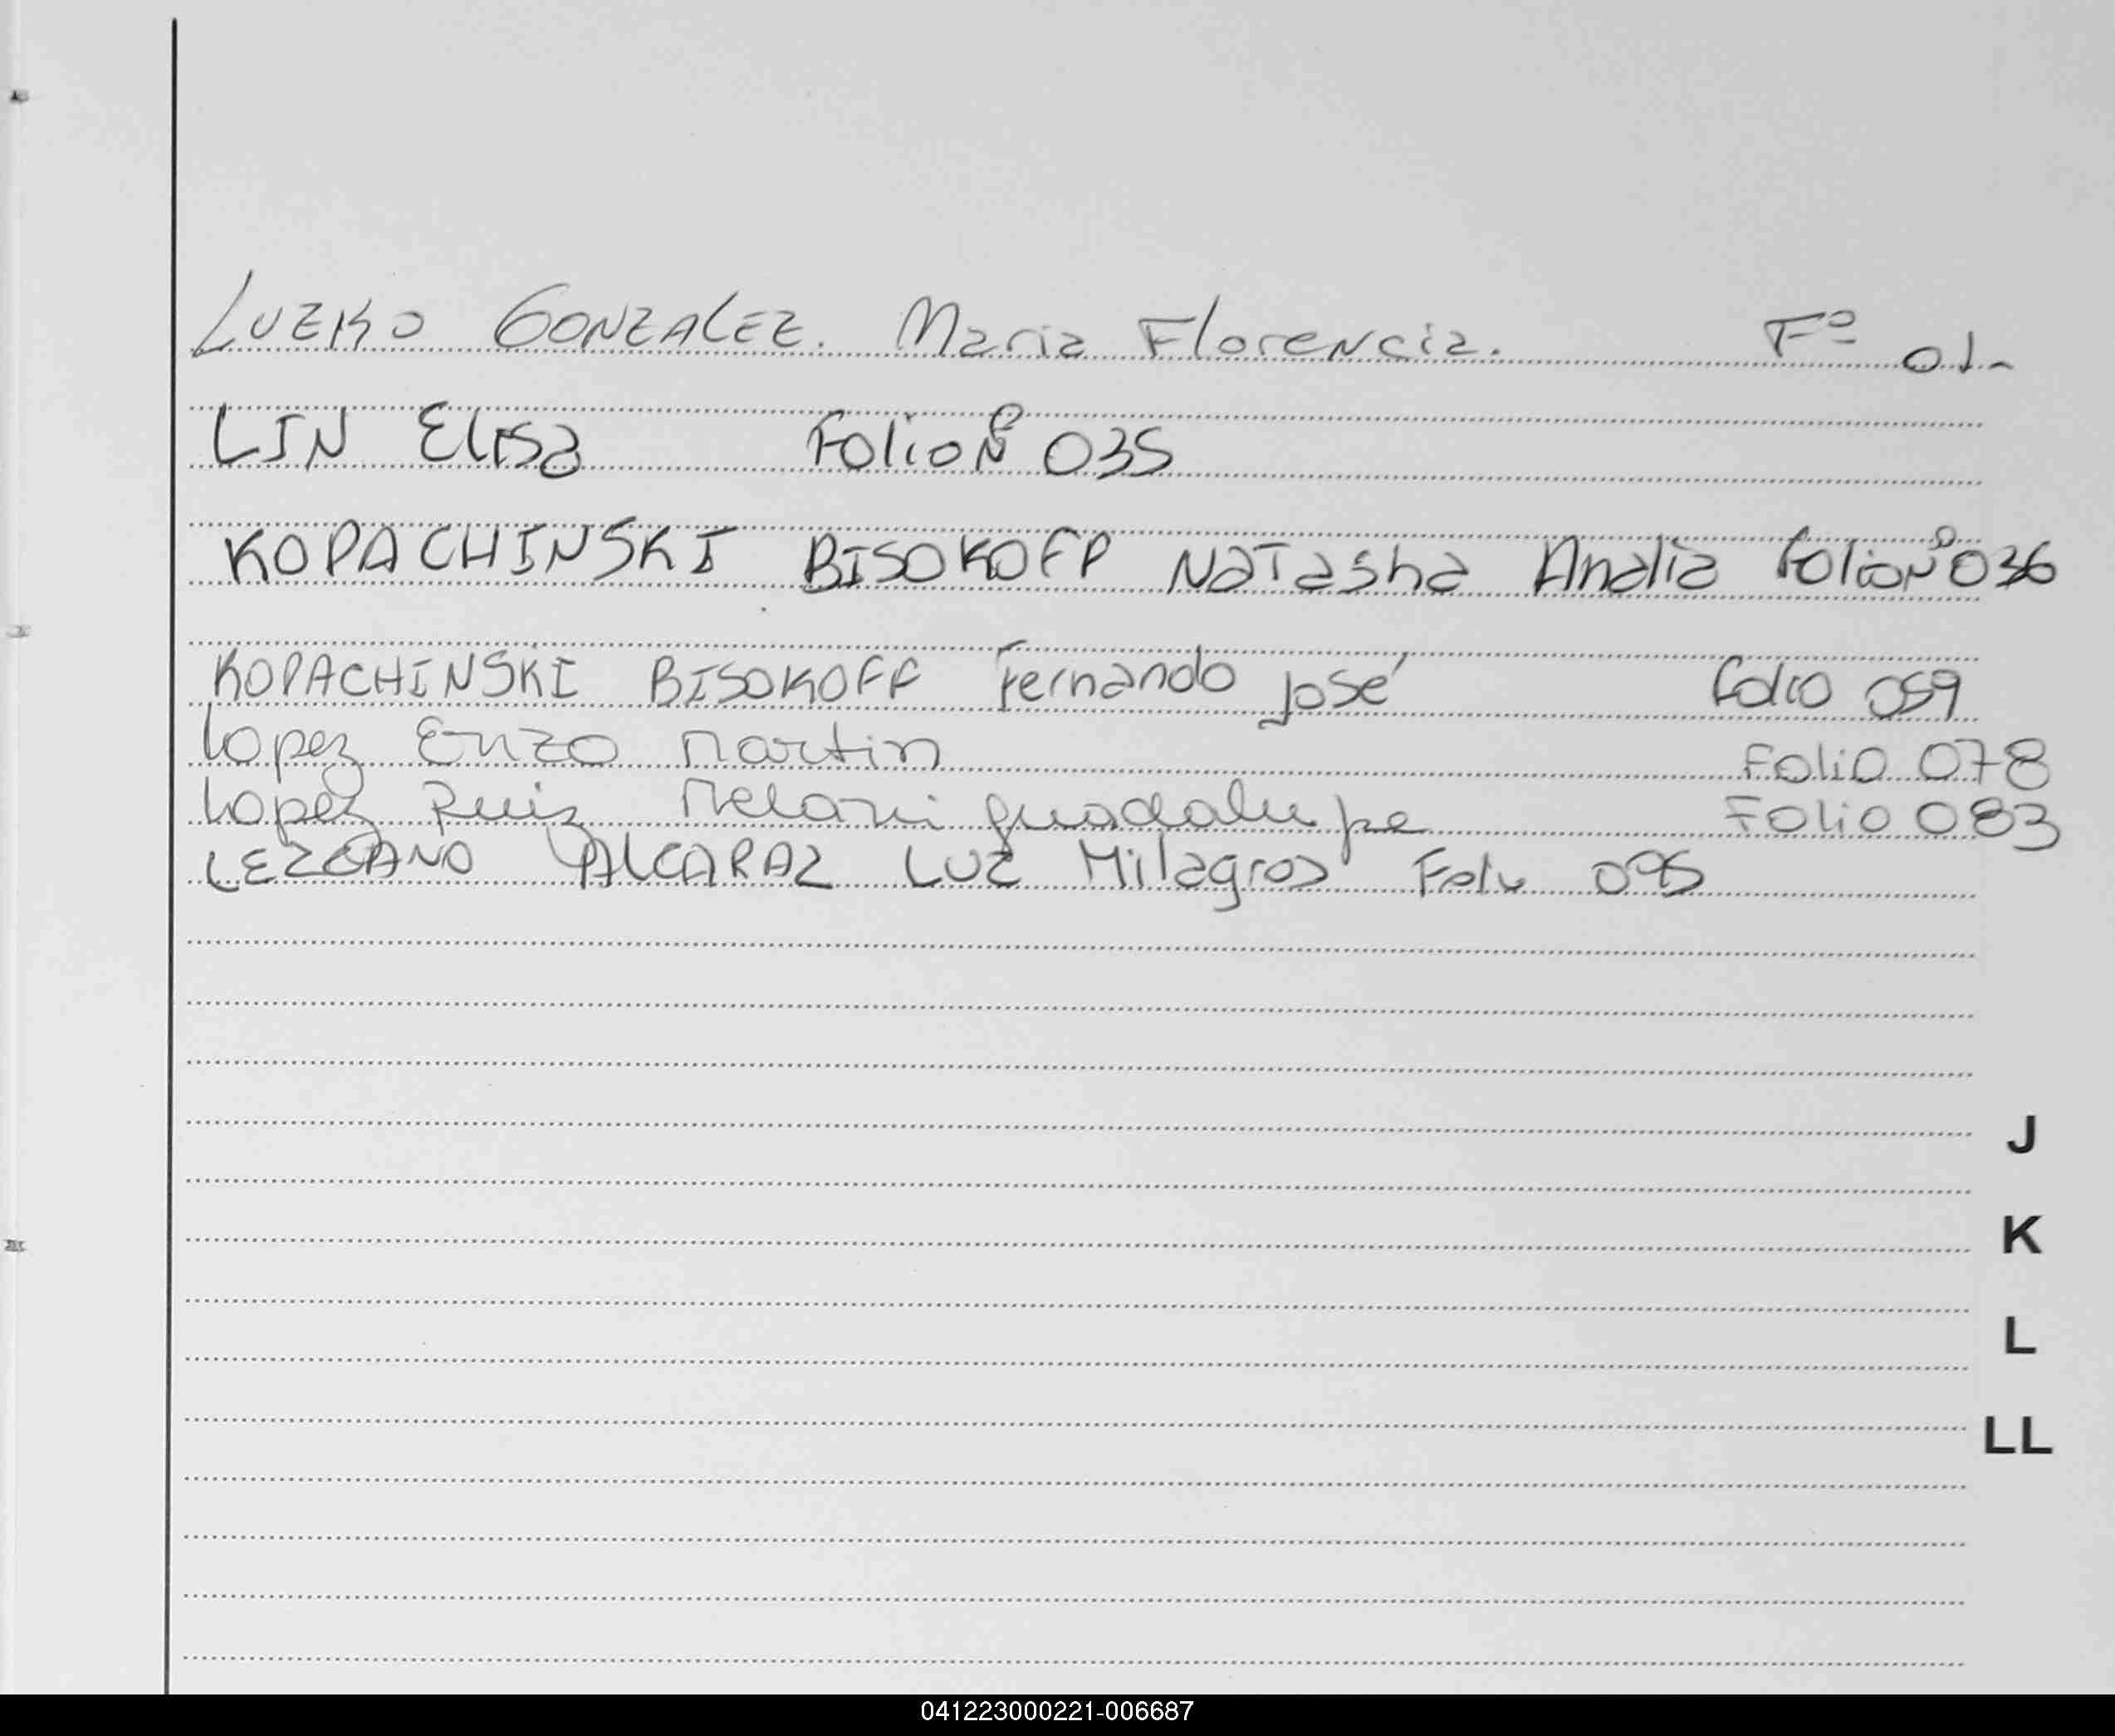 LUERO GONZALEZ. Maria Florencia. Fº 01-
LIN Elisa Folio Nº 035
KOPACHINSKI BISOKOFF NATasha Analia folio Nº 036
KOPACHINSKI BISOKOFF Fernando José folio 059
Lopez Enzo Martin Folio 078
Lopez Ruiz Melani guadalupe Folio 083
LEZCANO ALCARAZ LUZ Milagros Folio 095
J
K
L
LL
041223000221-006687